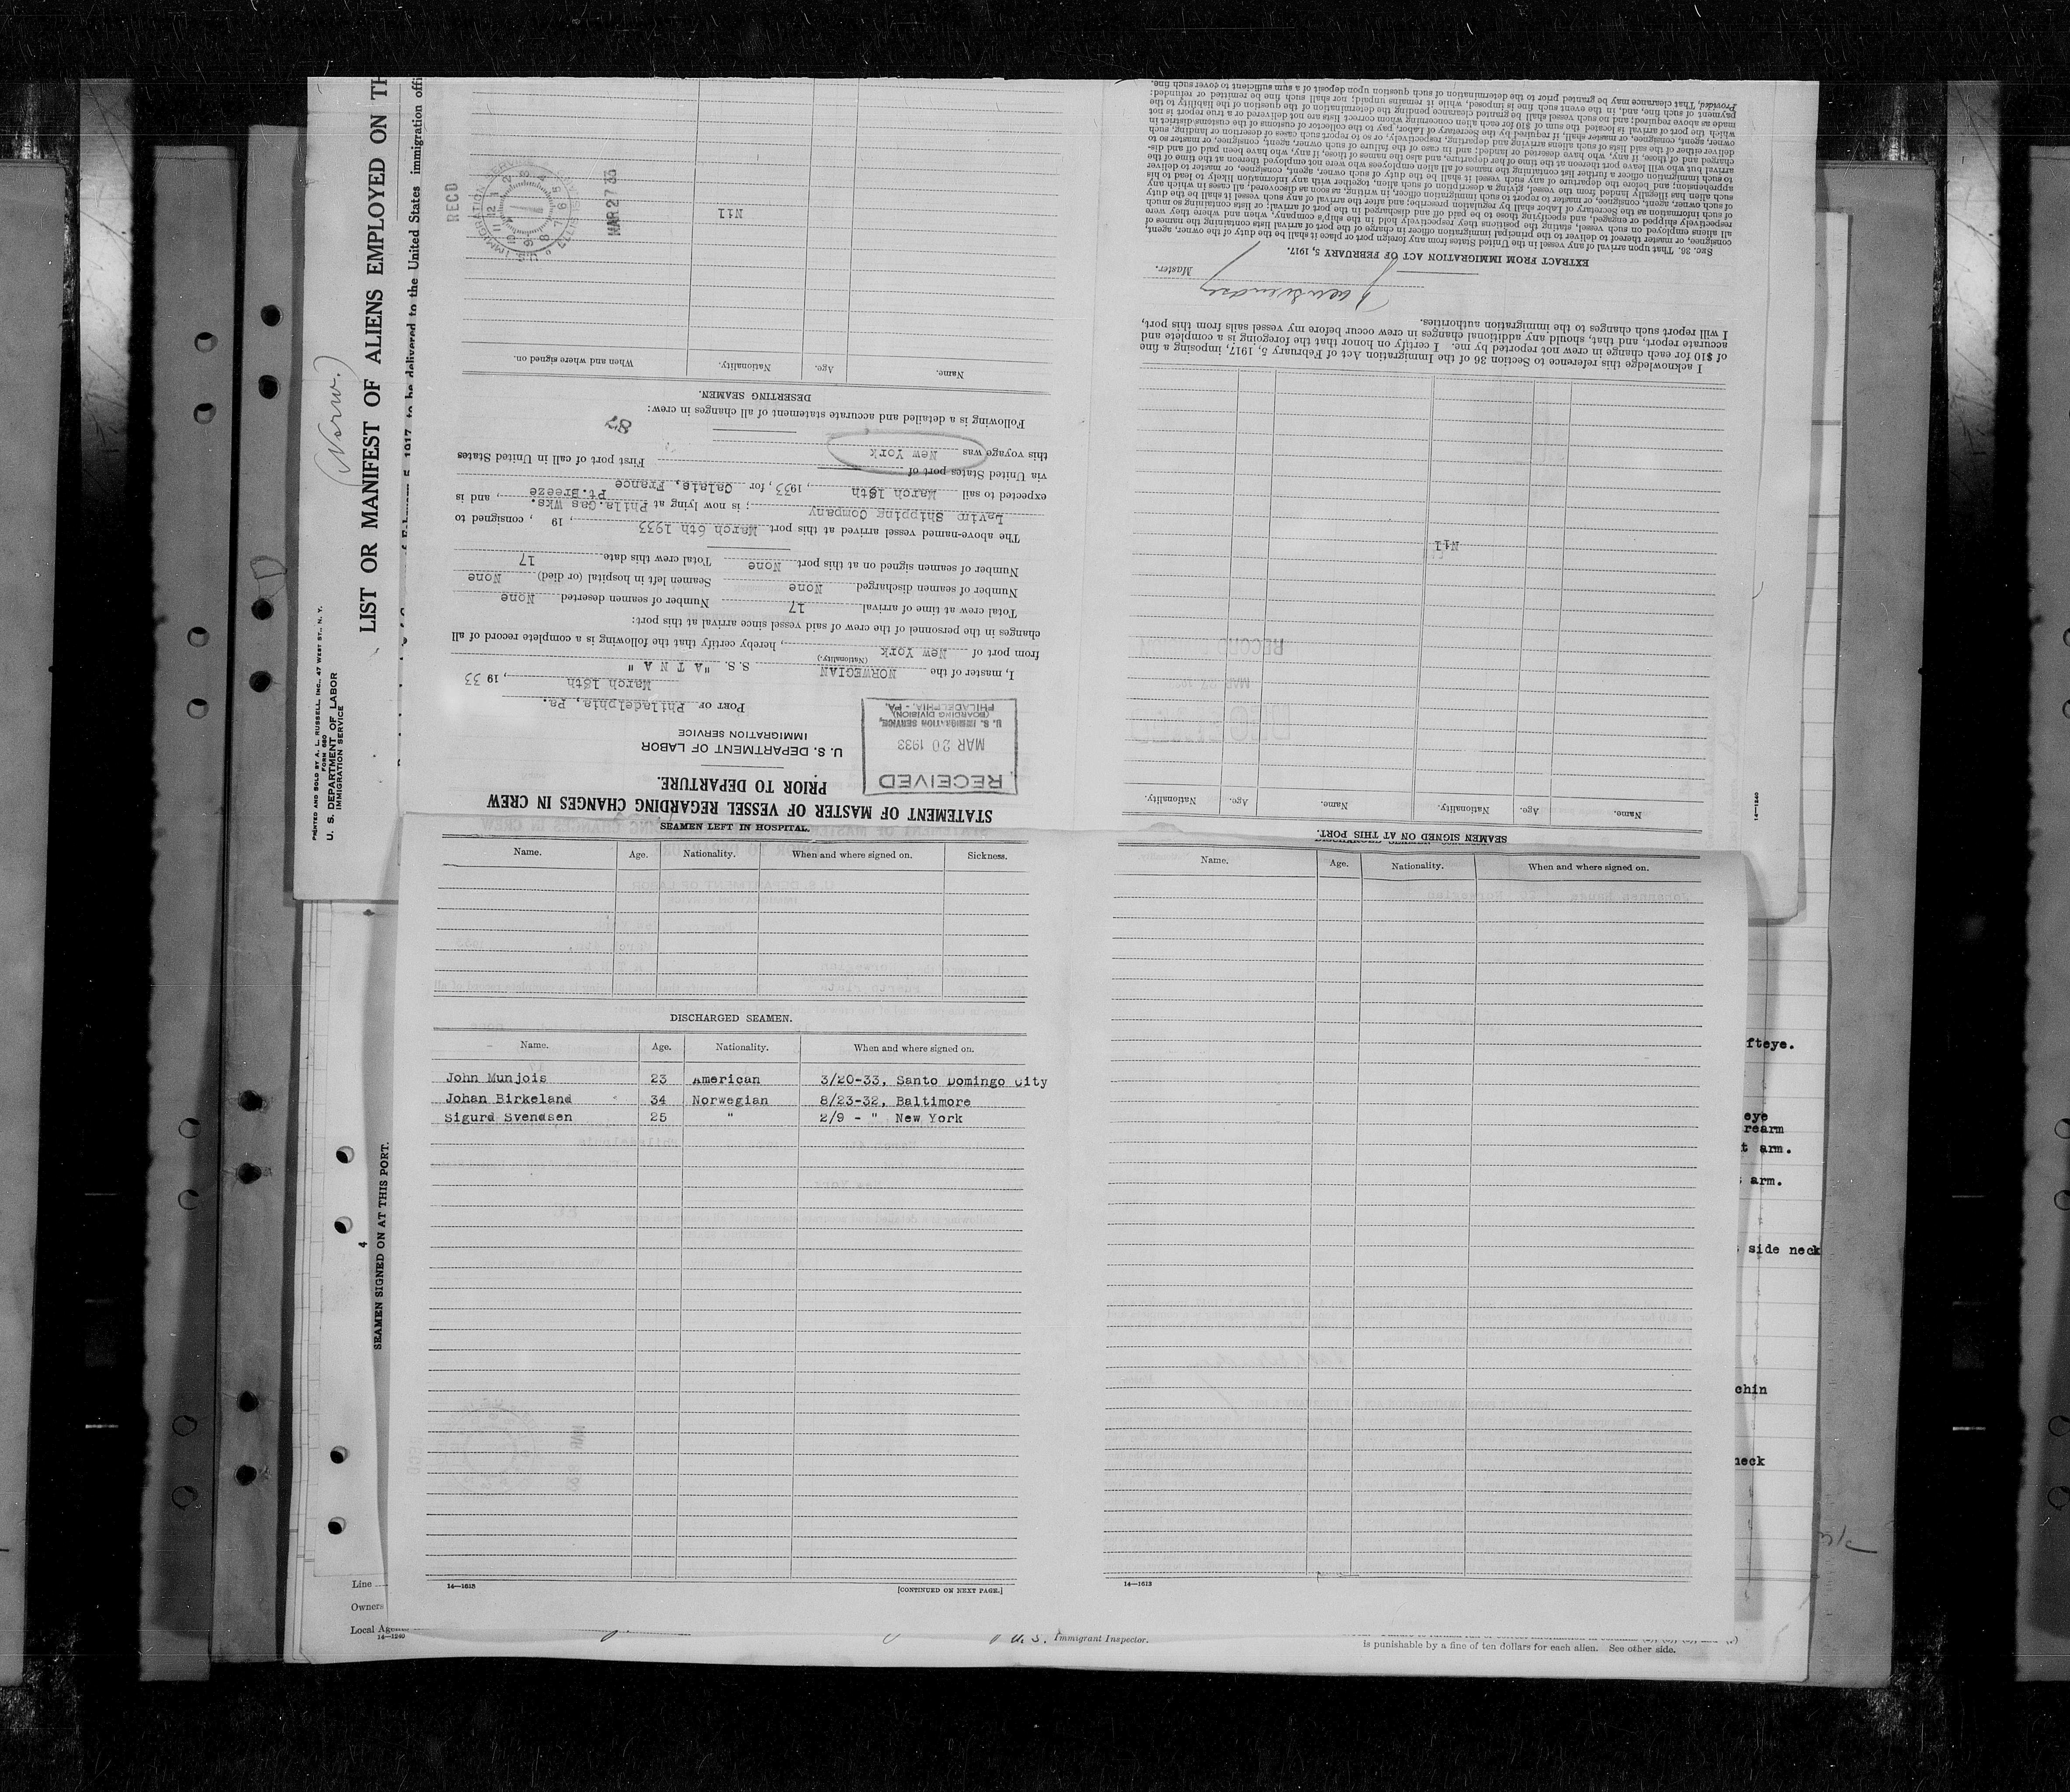 PRINTED AND SOLD BY A. L. RUSSELL, INC., 47 WEST ST., N. Y.
FORM 680
U. S. DEPARTMENT OF LABOR
IMMIGRATION SERVICE
(Norw.)
LIST OR MANIFEST OF ALIENS EMPLOYED ON TH
1917 to be delivered to the United States immigration offi
STATEMENT OF MASTER OF VESSEL REGARDING CHANGES IN CREW
PRIOR TO DEPARTURE.
RECEIVED
MAR 20 1933
U. S. IMMIGRATION SERVICE,
(BOARDING DIVISION)
PHILADELPHIA, - PA.
U. S. DEPARTMENT OF LABOR
IMMIGRATION SERVICE
PORT OF Philadelphia, Pa.
March 18th, 19 33
I, master of the NORWEGIAN S. S. "A T N A "
(Nationality.)
from port of New York, hereby certify that the following is a complete record of all
changes in the personnel of the crew of said vessel since arrival at this port:
Total crew at time of arrival 17 Number of seamen deserted None
Number of seamen discharged None Seamen left in hospital (or died) None
Number of seamen signed on at this port None Total crew this date 17
The above-named vessel arrived at this port March 6th 1933, 19 , consigned to
Lavino Shipping Company; is now lying at Phila.Gas Wks. Pt.Breeze, and is
expected to sail March 18th, 1933, for Calais, France
via United States port of
this voyage was New York First port of call in United States
87
Following is a detailed and accurate statement of all changes in crew:
DESERTING SEAMEN.
Name. Age. Nationality. When and where signed on.
Nil
MAR 27 33
RECD
U. S. IMMIGRATION SERVICE
SEAMEN SIGNED ON AT THIS PORT.
Name. Age. Nationality. Name. Age. Nationality.
Nil
I acknowledge this reference to Section 36 of the Immigration Act of February 5, 1917, imposing a fine
of $10 for each change in crew not reported by me. I certify on honor that the foregoing is a complete and
accurate report, and that, should any additional changes in crew occur before my vessel sails from this port,
I will report such changes to the immigration authorities.
Master.
EXTRACT FROM IMMIGRATION ACT OF FEBRUARY 5, 1917.
SEC. 36. That upon arrival of any vessel in the United States from any foreign port or place it shall be the duty of the owner, agent,
consignee, or master thereof to deliver to the principal immigration officer in charge of the port of arrival lists containing the names of
all aliens employed on such vessel, stating the positions they respectively hold in the ship's company, when and where they were
respectively shipped or engaged, and specifying those to be paid off and discharged in the port of arrival; or lists containing so much
of such information as the Secretary of Labor shall by regulation prescribe; and after the arrival of any such vessel it shall be the duty
of such owner, agent, consignee, or master to report to such immigration officer, in writing, as soon as discovered, all cases in which any
such alien has illegally landed from the vessel, giving a description of such alien, together with any information likely to lead to his
apprehension; and before the departure of any such vessel it shall be the duty of such owner, agent, consignee, or master to deliver
to such immigration officer a further list containing the names of all alien employees who were not employed thereon at the time of the
arrival but who will leave port thereon at the time of her departure, and also the names of those, if any, who have been paid off and dis-
charged and of those, if any, who have deserted or landed; and in case of the failure of such owner, agent, consignee, or master to
deliver either of the said lists of such aliens arriving and departing, respectively, or so to report such cases of desertion or landing, such
owner, agent, consignee, or master shall, if required by the Secretary of Labor, pay to the collector of customs of the customs district in
which the port of arrival is located the sum of $10 for each alien concerning whom correct lists are not delivered or a true report is not
made as above required; and no such vessel shall be granted clearance pending the determination of the question of the liability to the
payment of such fine, and, in the event such fine is imposed, while it remains unpaid; nor shall such fine be remitted or refunded:
Provided, That clearance may be granted prior to the determination of such question upon deposit of a sum sufficient to cover such fine.
14—1240
SEAMEN LEFT IN HOSPITAL.
Name. Age. Nationality. When and where signed on. Sickness.
DISCHARGED SEAMEN.
Name. Age. Nationality. When and where signed on.
John Munjois 23 American 3/20-33, Santo Domingo City
Johan Birkeland 34 Norwegian 8/23-32, Baltimore
Sigurd Svendsen 25 " 2/9 - " New York
14—1613
[CONTINUED ON NEXT PAGE.]
Name. Age. Nationality. When and where signed on.
14—1613
4
SEAMEN SIGNED ON AT THIS PORT.
fteye.
eye
rearm
t arm.
arm.
side neck
chin
neck
Line
Owners
Local Agen
14—1240
U. S. Immigrant Inspector.
is punishable by a fine of ten dollars for each alien. See other side.